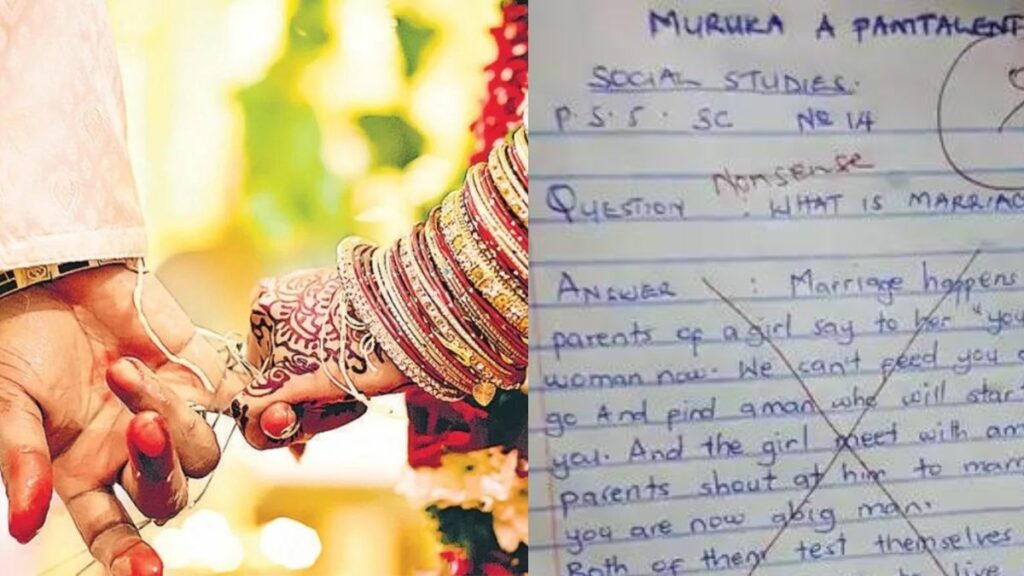 MURUKA A PAMTALENT
SOCIAL STUDIES.
P.S.5. SC No 14
Nonsense
QUESTION : WHAT IS MARRIAG
ANSWER : Marriage happens
parents of a girl say to her "you
woman now. We can't feed you
go And find a man who will star
you. And the girl meet with a m
parents shout at him to marr
you are now a big man.
Both of them test themselves
to live